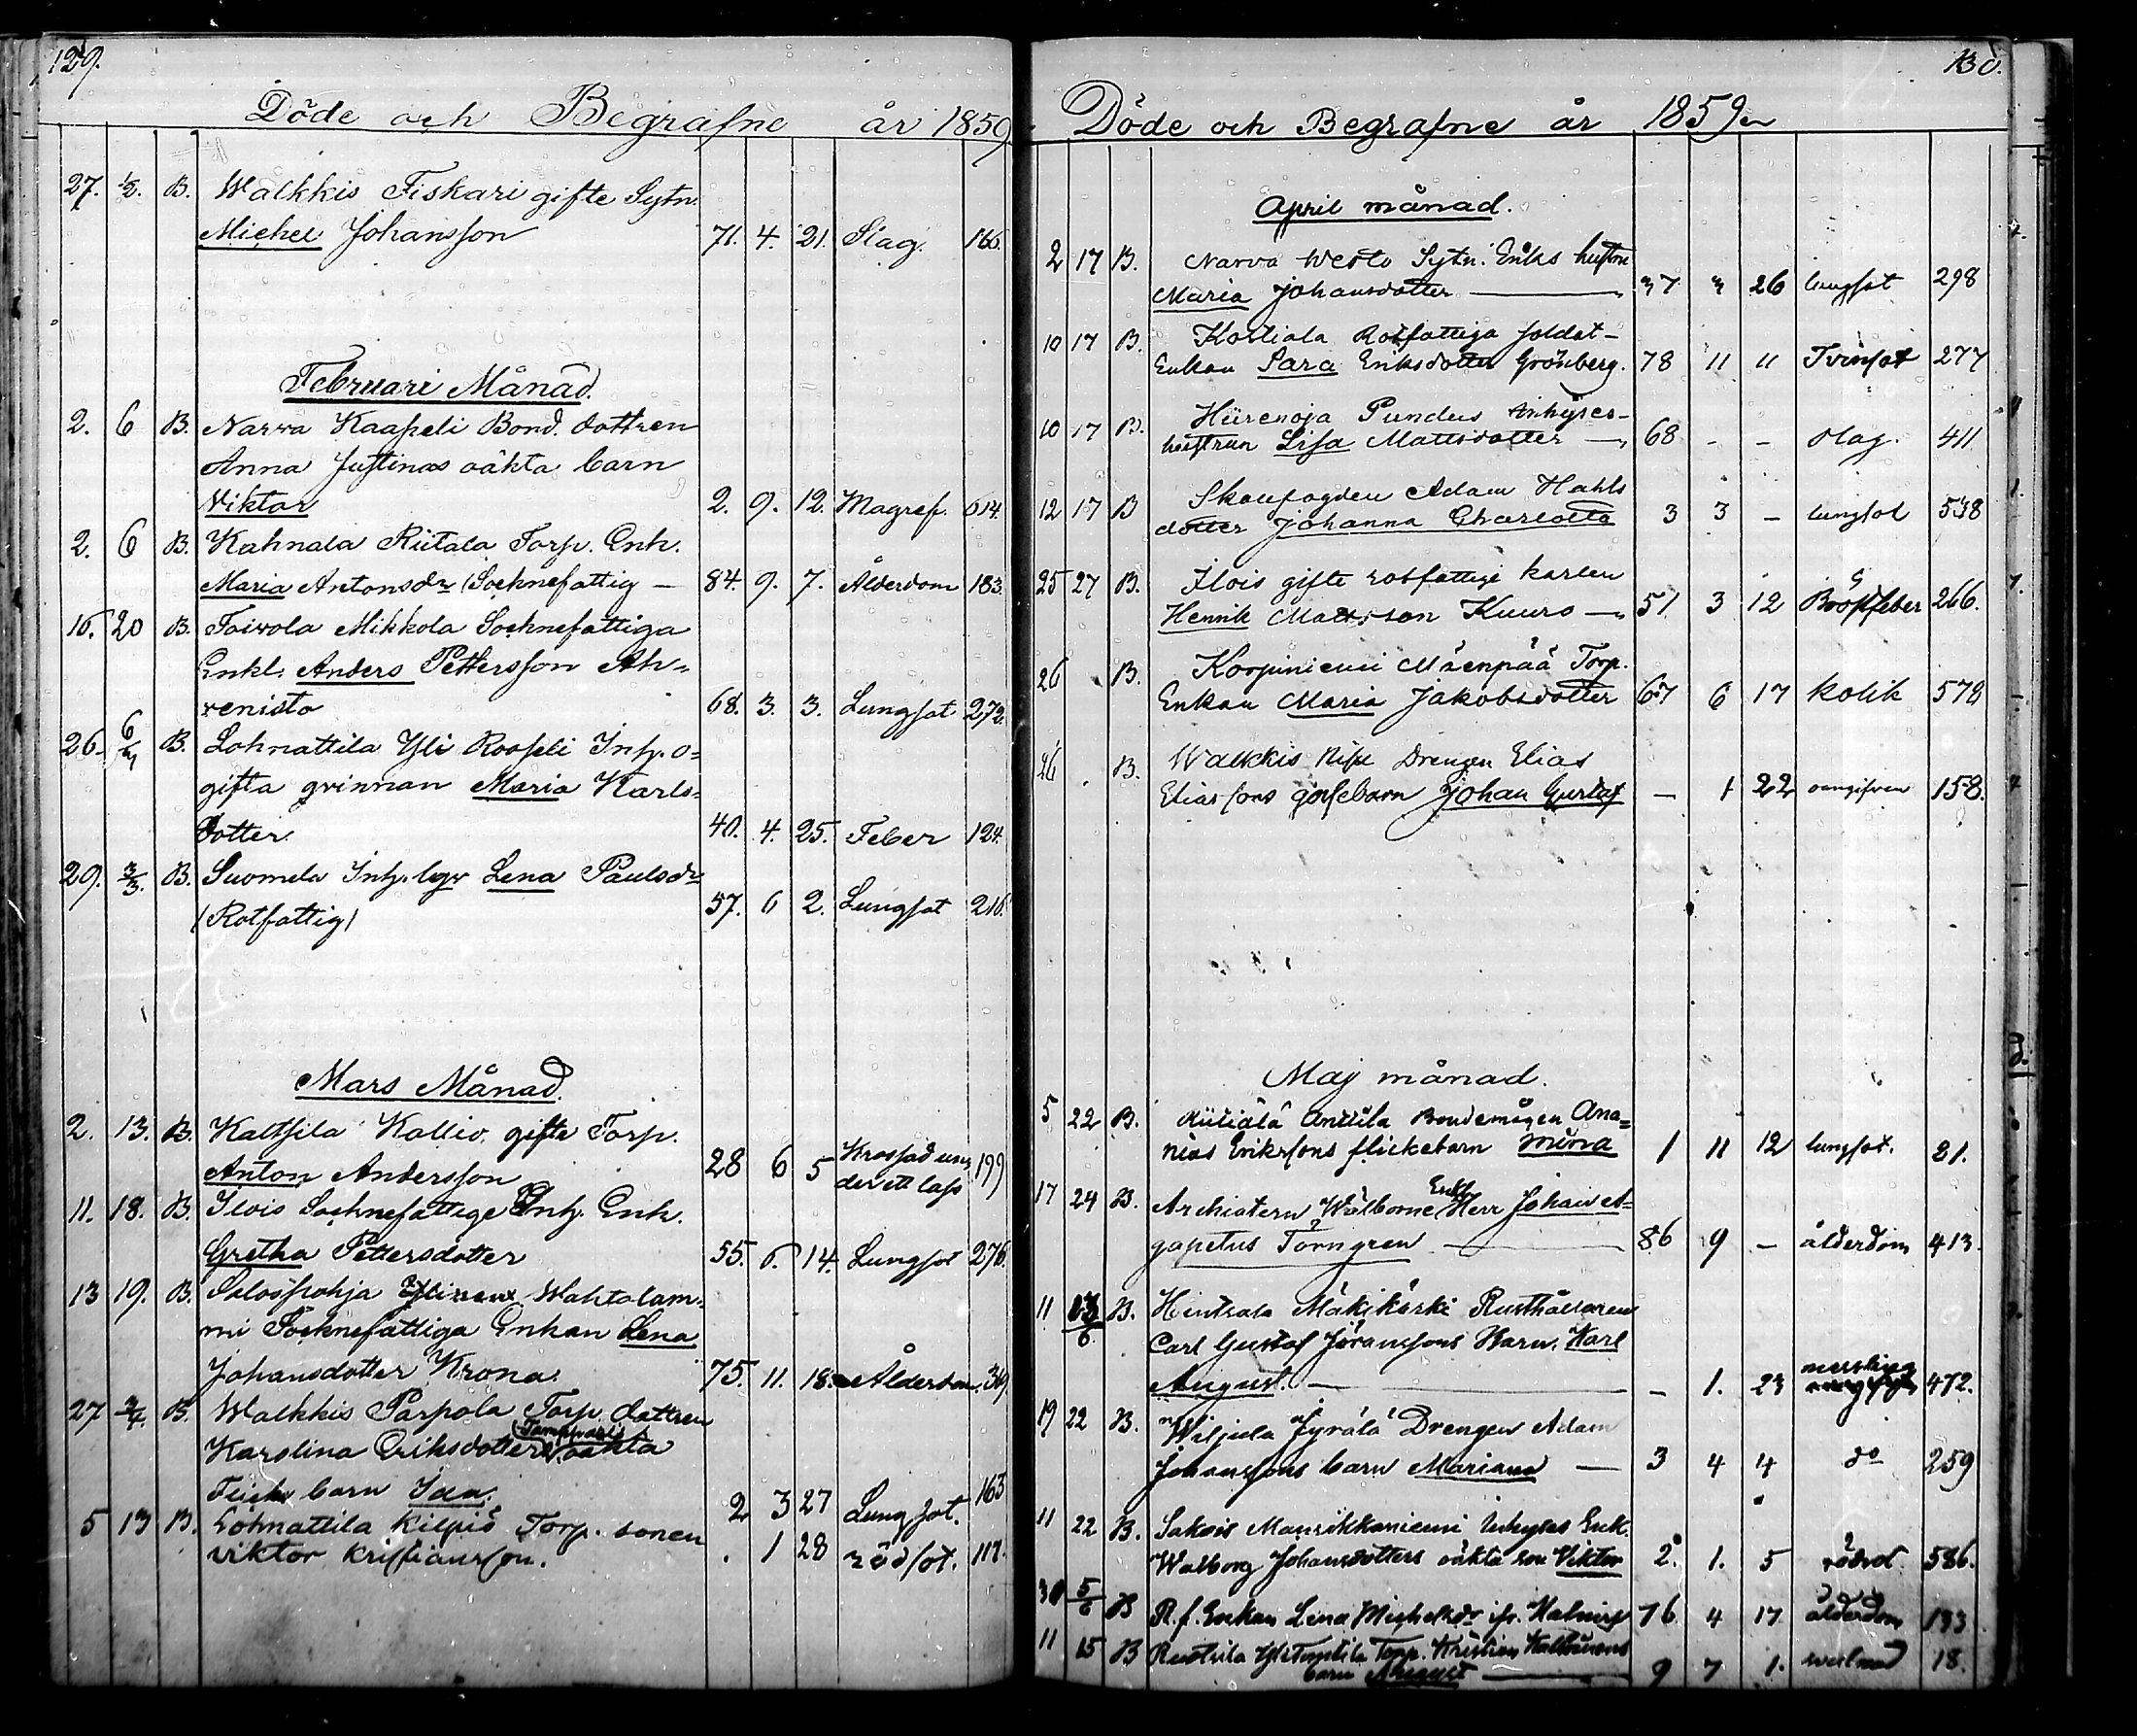 129.
Döde och Begrafne år 1859
27. 1/2. B. Walkkis Fiskari gifte Sytn.
Michel Johansson 71. 4. 21. Slag. 166.
Februari Månad.
2. 6 B. Narva Kaapeli Bond. dottren
Anna Justinas oäkta barn
Viktor 2. 9. 12. Magref. 614.
2. 6 B. Kahnala Riitala Torp. Enk.
Maria Antonsdr (Socknefattig — 84. 9. 7. Ålderdom 183.
16. 20 B. Toivola Mikkola Socknefattiga
Enkl. Anders Pettersson Ah-
venisto 68. 3. 3. Lungsot 272.
26. B. Lohnattila Yli Roopeli Inh. o-
gifta qvinnan Maria Karls-
dotter. 40. 4. 25. Feber 124.
29. 3/3. B. Suomela Inh. Lena Paulsdr
(Rotfattig) 57. 6 2. Lungsot 216.
Mars Månad.
2. 13. B. Kaltsila Kallio gifte Torp.
Anton Andersson 28 6 5 Krossad un-
der ett lass 199
11. 18. B. Ilois Socknefattige Inh. Enk.
Gretha Pettersdotter 55. 6. 14. Lungsot 276.
13 19. B. Salospohja Wahtolam-
mi Socknefattiga Enkan Lena
Johansdotter Krona. 75. 11. 18. Ålderdom
27 B. Walkkis Parpola Torp. dottren
Karolina Eriksdotters oäkta
barn Ida. 2 3 27 Lungsot. 163
5 13 B. Lohnattila Kilpiö Torp. sonen
Viktor Kristiansson. . 1 28 rödsot. 117.
130.
Döde och Begrafne år 1859
April månad.
2 17 B. Narva Westo Sytn. Eriks hustru
Maria Johansdotter — 37 3 26 lungsot 298
10 17 B. Kostiala Rotfattiga soldat-
Enkan Sara Eriksdotter Grönberg. 78 11 11 Tvinsot 277
10 17 B. Hürenoja Pundus Inhyses-
hustrun Lisa Mattsdotter — 68 - - slag. 411
12 17 B Skoufogden Adam Hahls
dotter Johanna Charlotta 3 3 - lungsot 538
25 27 B. Ilois gifte rotfattige karlen
Henrik Mattsson Kuuro — 51 3 12 Bröstfeber 266.
26 B. Korpiniemi Mäenpää Torp.
Enkan Maria Jakobsdotter 67 6 17 kolik 578
26 . B. Walkkis Drengen Elias
Eliassons gossebarn Johan Gustaf — 1 22 oangifven 158.
Maj månad.
5 22 B. Riitiälä Anttila Bondemågen Ana-
nias Erikssons flickebarn Mina 1 11 12 lungsot. 21.
17 24 B. Archiatern Wälborne Enkl. Herr Johan A-
gapetus Törngren — 86 9 - ålderdom 413.
11 B. Hintsala Mäkikärki Rusthållaren
Carl Gustaf Göranssons Barn. Karl
August. — - 1. 23 472.
19 22 B. Wiljula Jyrälä Drengen Adam
Johanssons barn Mariana — 3 4 4 do 259
11 22 B. Saksis Maurikkaniemi Inhyses Enk.
Walborg Johansdotters oäkta son Viktor 2. 1. 5 rödsot 586.
30 5/6 B R.f. Enkan Lena Michelsdr 76 4 17 ålderdom 133
11 15 B Torp. Kristian
barn August — 9 7 1. 18.